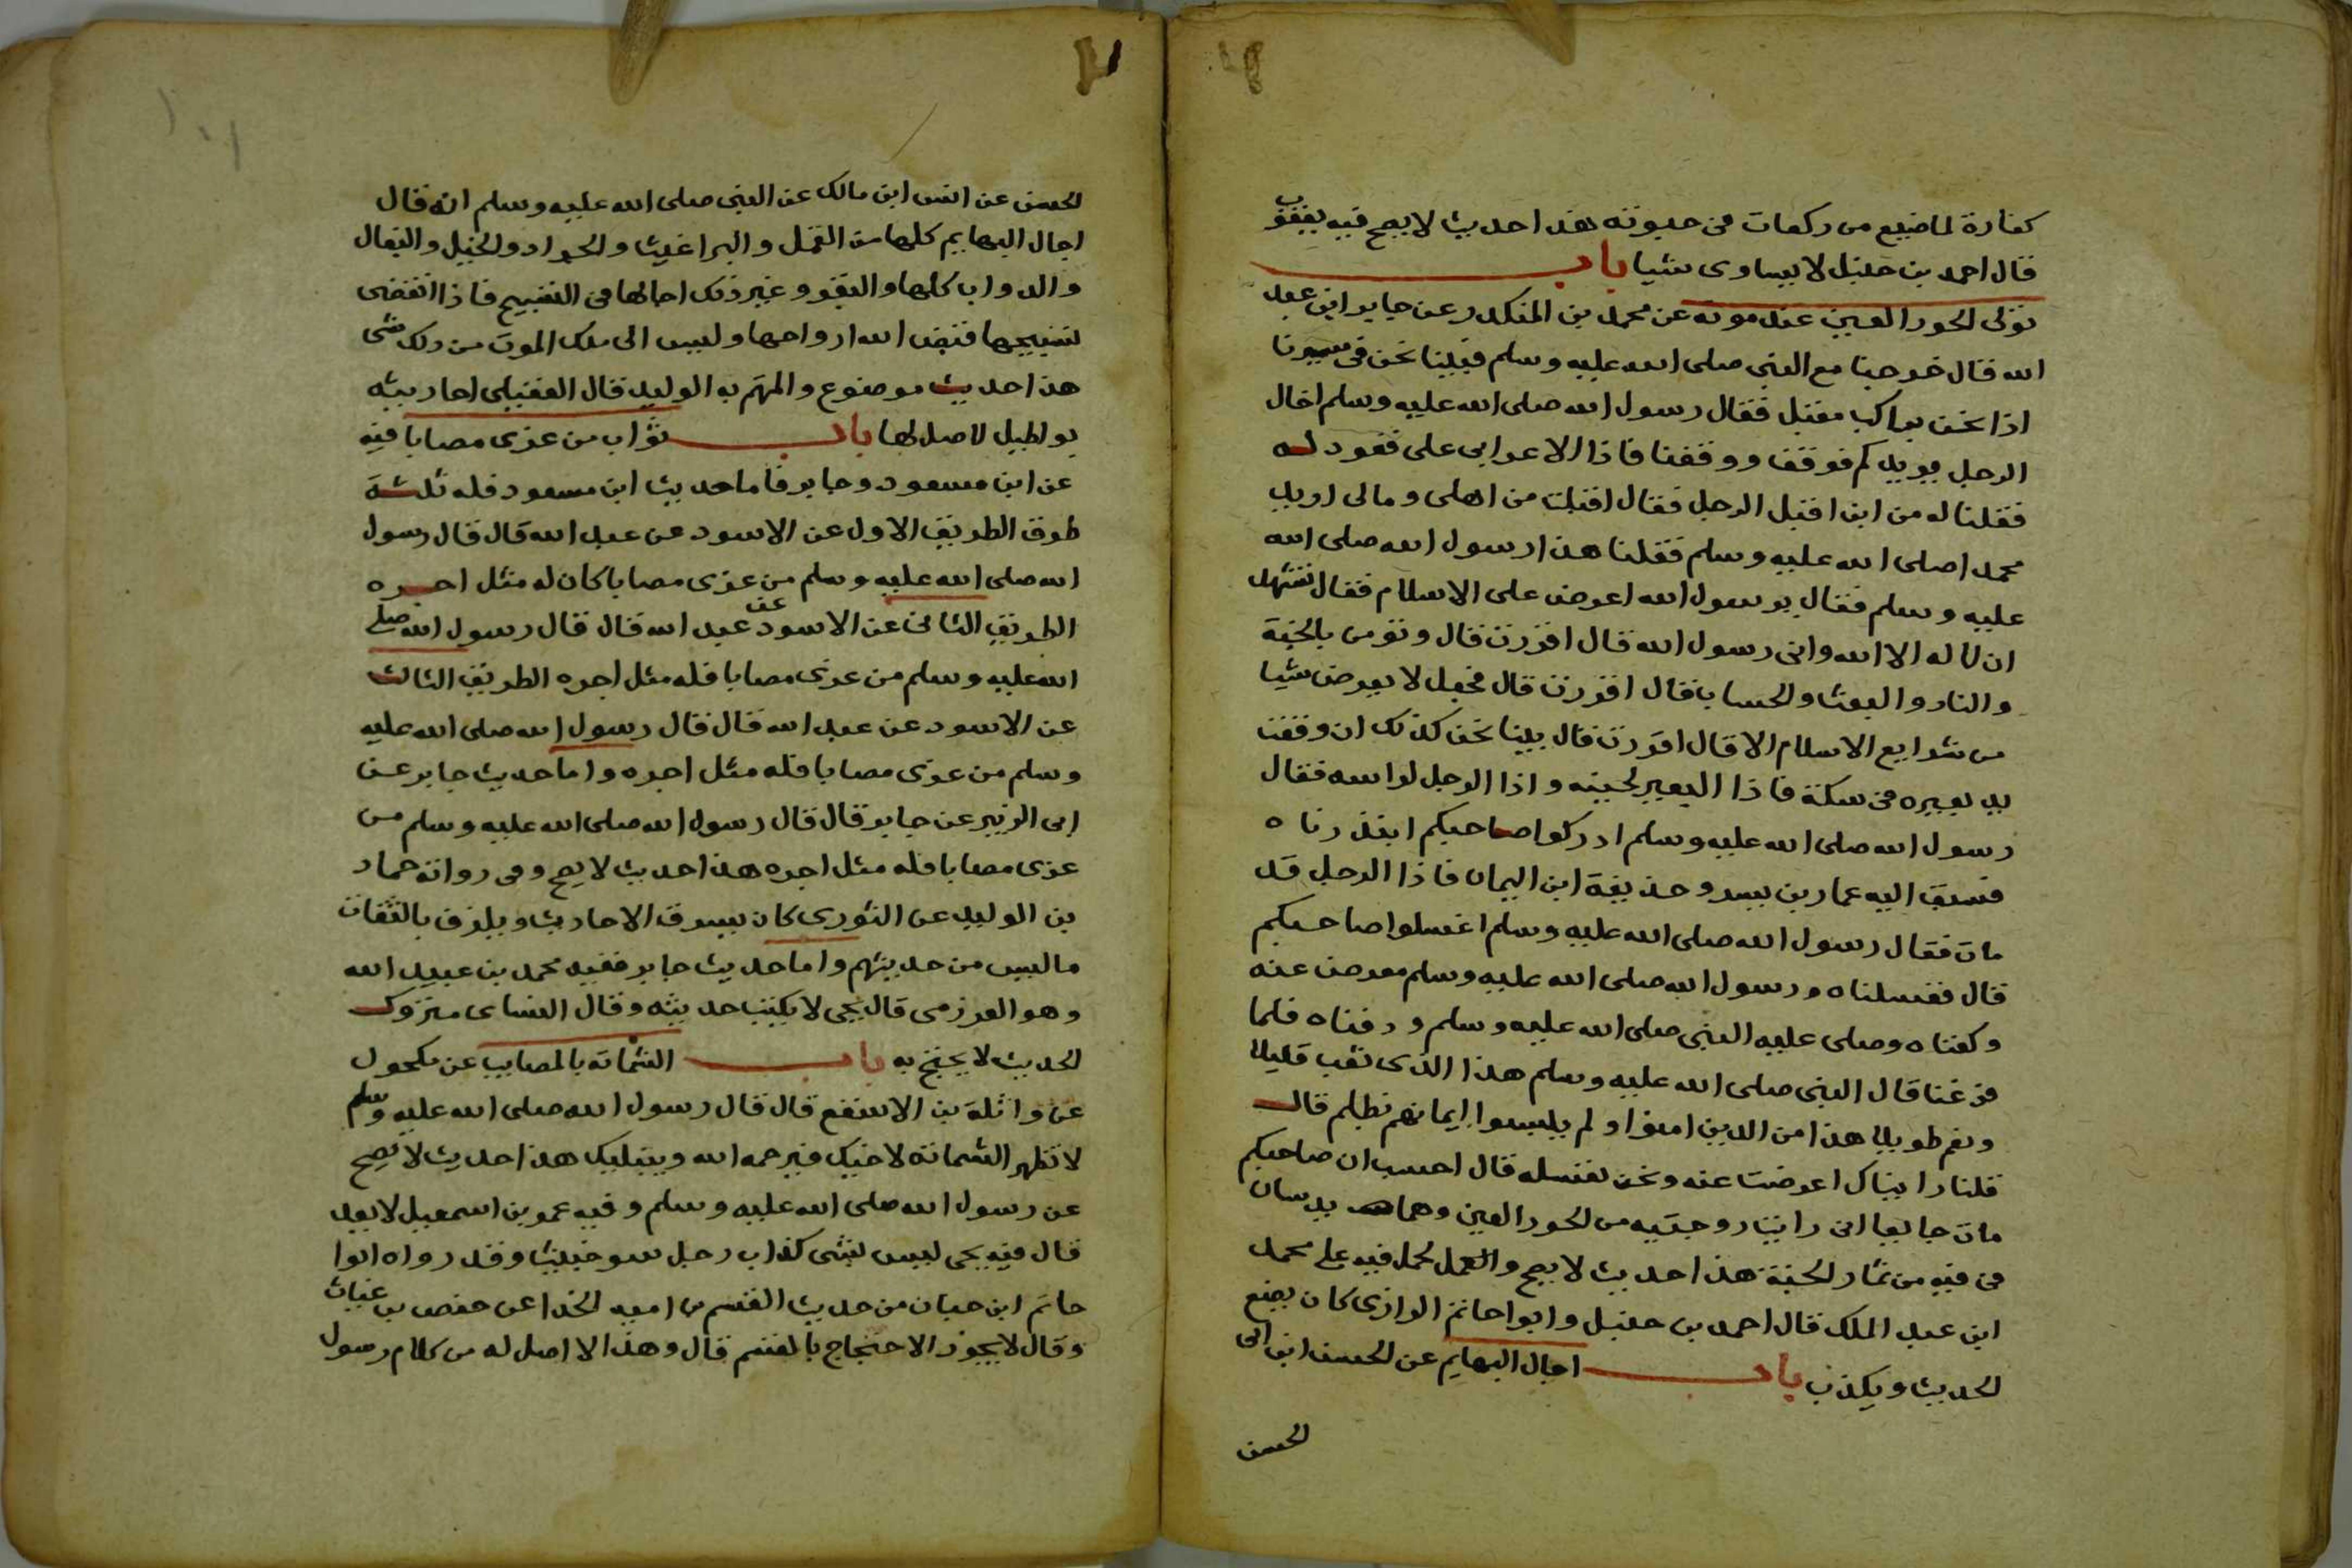 كفارة لما ضيع من ركعات فى حيوته هذا حديث لا يصح فيه يعقوب
قال احمد بن حنبل لا يساوى شيا باب
تولى الحور العين عند موته عن محمد بن المنكدر عن جابر ابن عبد
الله قال خرجنا مع النبى صلى الله عليه وسلم فبينا نحن فى مسيرنا
اذا نحن براكب مقبل فقال رسول الله صلى الله عليه وسلم اخال
الرجل يريدكم فوقف ووقفنا فاذا الاعرابى على قعود له
فقلنا له من اين اقبل الرجل فقال اقبلت من اهلى ومالى اريد
محمدا صلى الله عليه وسلم فقلنا هذا رسول الله صلى الله
عليه وسلم فقال يرسول الله اعرض على الاسلام فقال تشهد
ان لا اله الا الله وانى رسول الله قال اقررت قال وتؤمن بالجنة
والنار والبعث والحساب قال اقررت قال فجعل لا يعرض شيا
من شرايع الاسلام الا قال اقررت قال بينا نحن كذلك ان وقفت
يد بعيره فى سكنة فاذا البعير لجنبه واذا الرجل لراسه فقال
رسول الله صلى الله عليه وسلم ادركوا صاحبكم ابتدرناه
فسبق اليه عمار بن يسر وحذيفة ابن اليمان فاذا الرجل قد
مات فقال رسول الله صلى الله عليه وسلم اغسلوا صاحبكم
قال فغسلناه ورسول الله صلى الله عليه وسلم معرض عنه
وكفناه وصلى عليه النبى صلى الله عليه وسلم ودفناه فلما
فرغنا قال النبى صلى الله عليه وسلم هذا الذى تعب قليلا
ونعم طويلا هذا من الذين امنوا ولم يلبسوا ايمانهم بظلم قال
قلنا رايناك اعرضت عنه ونحن نغسله قال احسب ان صاحبكم
مات جايعا انى رايت زوجتيه من الحور العين وهما يدسان
فى فيه من ثمار الجنة هذا حديث لا يصح والحمل فيه على محمد
ابن عبد الملك قال احمد بن حنبل وابوا حاتم الرازى كان يضع
الحديث ويكذب باب اجال البهايم عن الحسن ابن ابى
الحسن
الحسن عن انس ابن مالك عن النبى صلى الله عليه وسلم انه قال
اجال البهايم كلها من القمل والبراغيث والجراد والخيل والبغال
والدواب كلها والبقر وغير ذلك اجالها فى التسبيح فاذا انقضى
تسبيحها قبض الله ارواحها وليس الى ملك الموت من ذلك شى
هذا حديث موضوع والمتهم به الوليد قال العقيلى احاديثه
بواطيل لا اصل لها باب ثواب من عزى مصابا فيه
عن ابن مسعود وجابر فاما حديث ابن مسعود فله ثلثة
طرق الطريق الاول عن الاسود عن عبد الله قال قال رسول
الله صلى الله عليه وسلم من عزى مصابا كان له مثل اجره
الطريق الثانى عن الاسود عن عبد الله قال قال رسول الله صلى
الله عليه وسلم من عزى مصابا فله مثل اجره الطريق الثالث
عن الاسود عن عبد الله قال قال رسول الله صلى الله عليه
وسلم من عزى مصابا فله مثل اجره واما حديث جابر عن
ابى الزبير عن جابر قال قال رسول الله صلى الله عليه وسلم من
عزى مصابا فله مثل اجره هذا حديث لا يصح وفى رواته حماد
بن الوليد عن الثورى كان يسرق الاحاديث ويلزق بالثقات
ما ليس من حديثهم واما حديث جابر ففيه محمد بن عبيد الله
وهو العرزمى قال يحى لا يكتب حديثه وقال النساى متروك
الحديث لا يحتج به باب الشماتة بالمصايب عن مكحول
عن واثلة بن الاسقع قال قال رسول الله صلى الله عليه وسلم
لا تظهر الشماتة لاخيك فيرحمه الله ويبتليك هذا حديث لا يصح
عن رسول الله صلى الله عليه وسلم وفيه عمر بن اسمعيل لا يعد
قال فيه يحى ليس بشى كذاب رجل سو خبيث وقد رواه ابوا
حاتم ابن حبان من حديث القسم بن اميه الحذا عن حفص بن غياث
وقال لا يجوز الاحتجاج بالقسم قال وهذا لا اصل له من كلام رسول